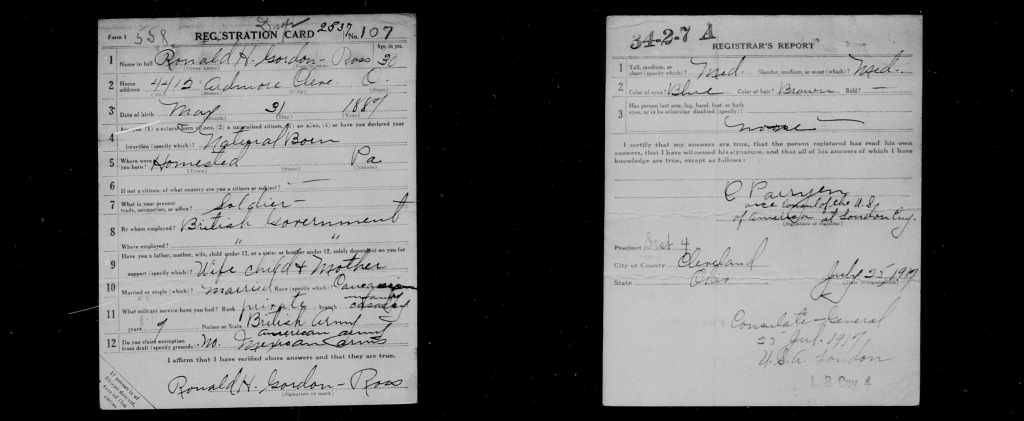 Form 1 558 REGISTRATION CARD 2837 No. 107
1 Name in full Ronald H. Gordon-Ross Age, in yrs. 30
2 Home address 4412 Ardmore Cleve. O.
3 Date of birth May 31 1887
4 Are you (1) a natural born citizen, (2) a naturalized citizen, (3) an alien, (4) or have you declared your
intention (specify which)? Natural Born
5 Where were you born? Homested Pa
6 If not a citizen, of what country are you a citizen or subject? —
7 What is your present trade, occupation, or office? Soldier-
8 By whom employed? British Government
Where employed? " "
9 Have you a father, mother, wife, child under 12, or a sister or brother under 12, solely dependent on you for
support (specify which)? Wife child & Mother
10 Married or single (which)? married Race (specify which)? Caucasian
11 What military service have you had? Rank private branch infantry cavalry
years 9 Nation or State British Army
American army
12 Do you claim exemption from draft (specify grounds)? No. Mexican army
I affirm that I have verified above answers and that they are true.
Ronald H. Gordon-Ross
(Signature or mark)
34-2-7 A
REGISTRAR'S REPORT
1 Tall, medium, or short (specify which)? Med. Slender, medium, or stout (which)? Med-
2 Color of eyes? Blue Color of hair? Brown Bald? —
3 Has person lost arm, leg, hand, foot, or both
eyes, or is he otherwise disabled (specify)?
none
I certify that my answers are true, that the person registered has read his own
answers, that I have witnessed his signature, and that all of his answers of which I have
knowledge are true, except as follows:
vice consul of the U.S.
of America at London Eng.
(Signature of registrar)
Precinct 4
City or County Cleveland
State Ohio July 25 1917
Consulate-General
Jul. 1917
U.S.A. London